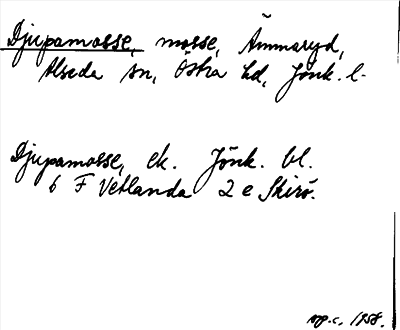 Djupamosse, mosse, Ämmaryd,
Alseda sn, Östra hd, Jönk. l.
Djupamosse, ek. Jönk. bl.
6 F Vetlanda 2 e Skirö.
op.c. 1958.